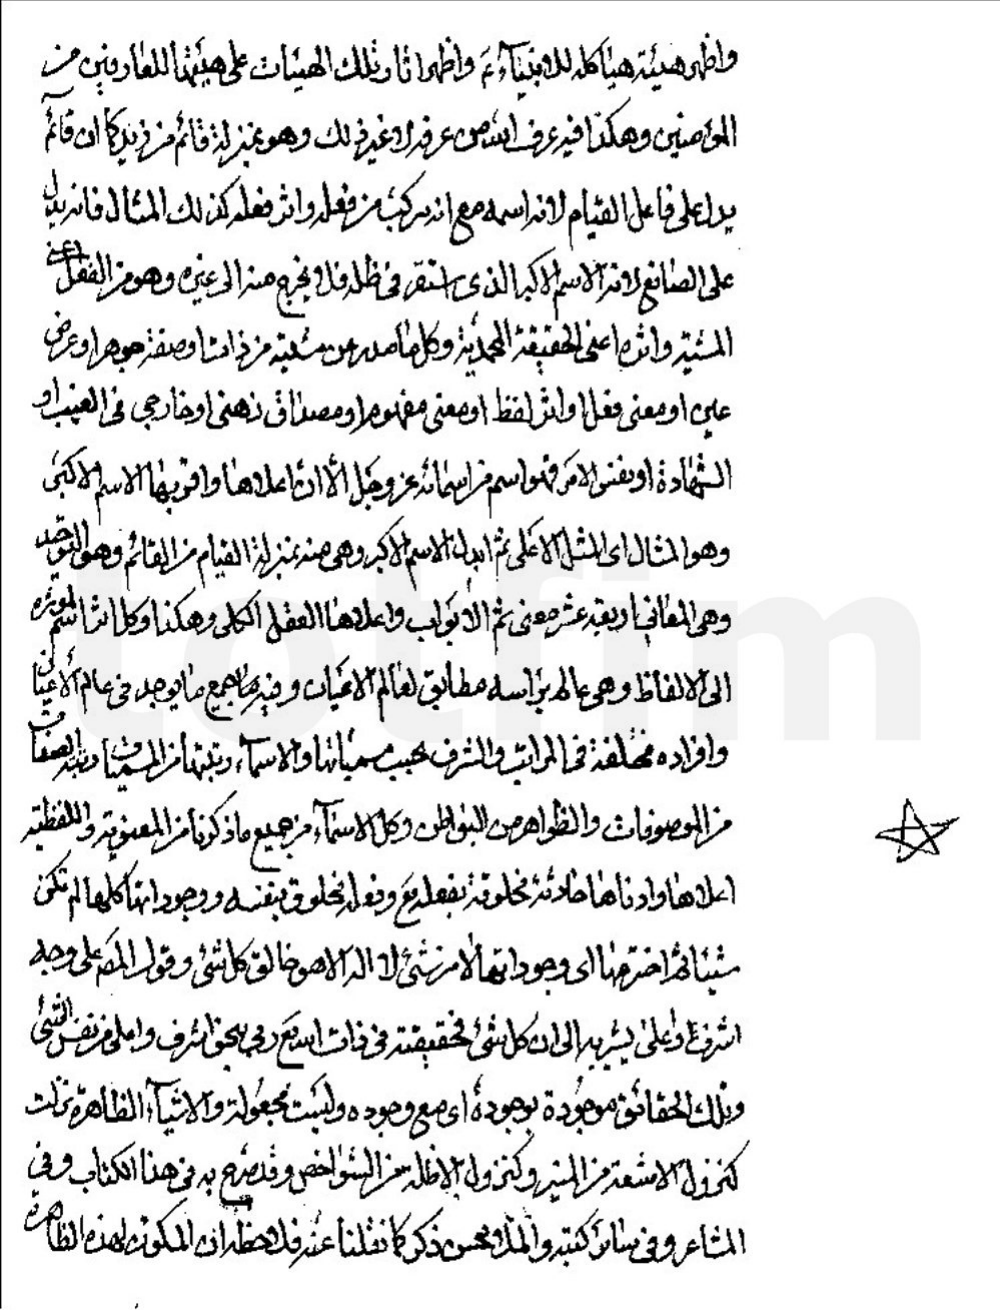 واظهر هيئة هياكله للانبياء ع واظهر اثار تلك الهيئات على هيئتها للعارفين من
المؤمنين وهكذا فيه عرف الله من عرفه لا غير ذلك وهو بمنزلة قائم من زيد كما ان قائم
يدل على فاعل القيام لانه اسمه مع انه مركب من فعله واثر فعله كذلك المثال فانه يدل
على الصانع لانه الاسم الاكبر الذى استقر فى ظله فلا يخرج منه الى غيره وهو من الفعل اعنى
المشية واثره اعنى الحقيقة المحمدية وكل ما صدر عن مشيته من ذات او صفة جوهر او عرض
عين او معنى فعل او اثر لفظ او معنى مفهوم او مصداق ذهنى او خارجى فى الغيب او
الشهادة او نفس الامر فهو اسم من اسمائه عز وجل الا ان اعلاها واقربها الاسم الاكبر
وهو المثال اى المثل الاعلى ثم ابدل الاسم الاكبر وهى منه بمنزلة القيام من القائم وهو التوحيد
وهى المعانى اربعة عشر معنى ثم الابواب واعلاها العقل الكلى وهكذا وكل اثر اسم لمؤثره
الى الالفاظ وهى عالم براسه مطابق لعالم الاعيان وفيه جميع ما يوجد فى عالم الاعيان
وافراده مختلفة فى المراتب والشرف بحسب مسمياتها والاسماء رتبتها من المسميات رتبة الصفات
من الموصوفات والظواهر من البواطن وكل الاسماء من جميع ما ذكرنا من المعنوية واللفظية
اعلاها وادناها حادثة مخلوقة بفعله تع وفعله مخلوق بنفسه ووجوداتها كلها لم تكن
شيئا ثم اخترعها اى وجوداتها لا من شئ لا اله الا هو خالق كل شئ وقول المص على وجه
اشرف واعلى يشير به الى ان كل شئ فحقيقته فى ذات الله تع ربى بنحو اشرف واعلى من نفس الشئ
وتلك الحقائق موجودة بوجوده اى مع وجوده وليست مجعولة والاشياء الظاهرة نزلت
كنزول الاشعة من المنير وكنزول الاظلة من الشواخص وقد صرح به فى هذا الكتاب وفى
المشاعر وفى سائر كتبه والملا محسن ذكر كما نقلنا عنه فلاحظه ان المكون لهذه الظاهرة
totfim